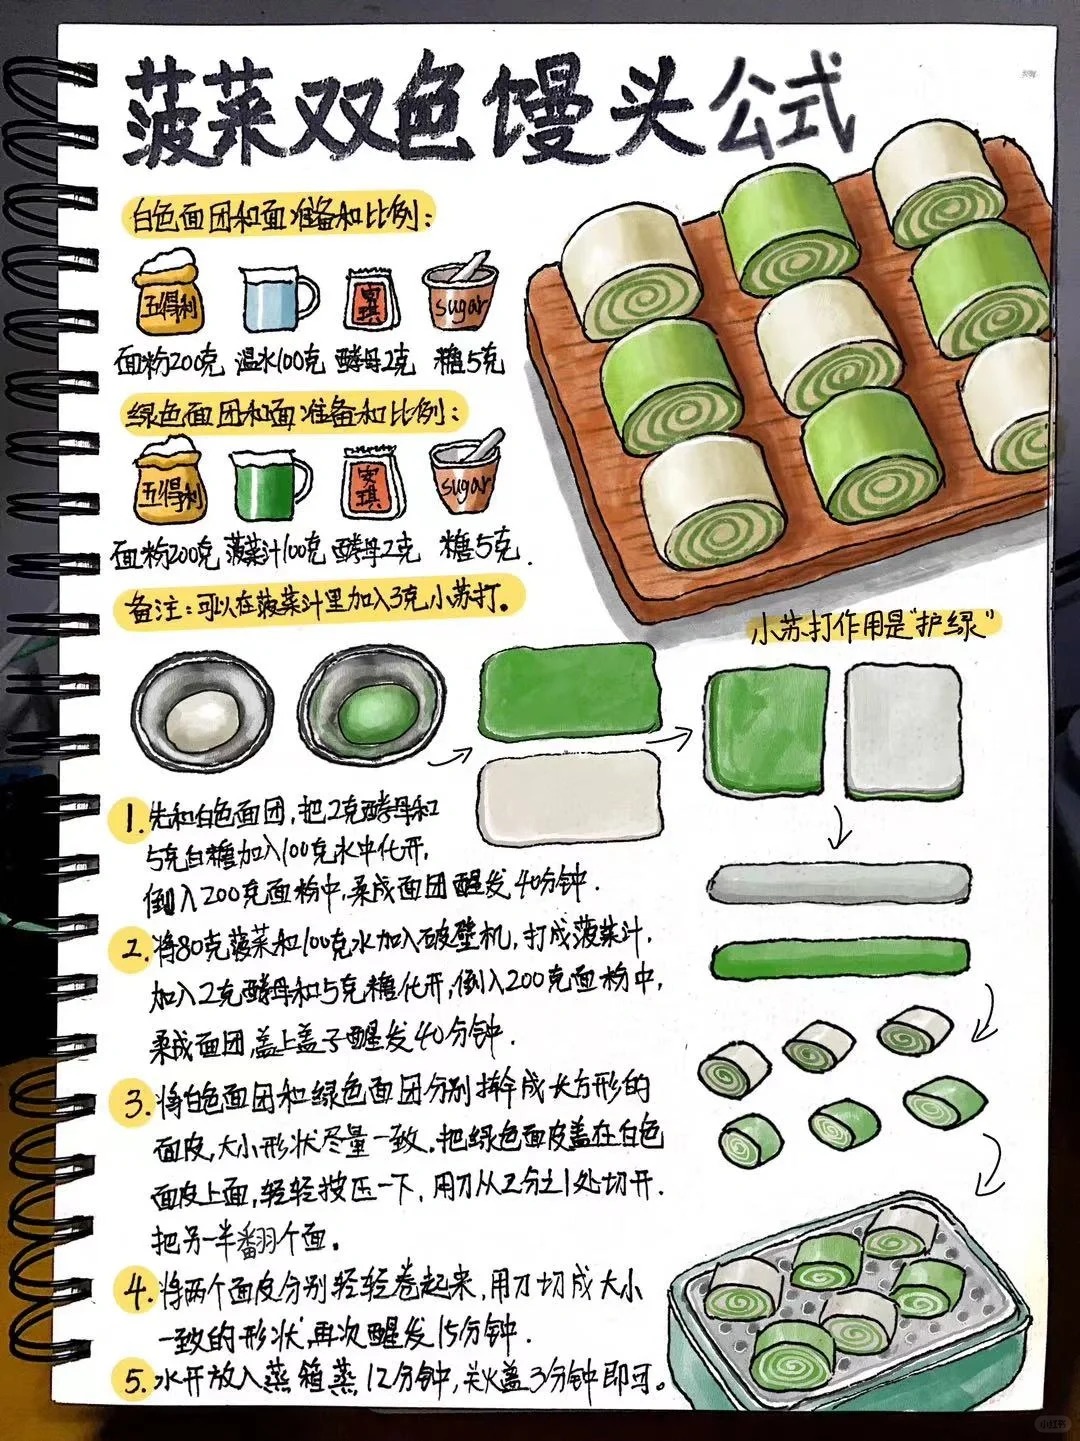 菠菜双色馒头公式
白色面团和面准备和比例：
五得利
安琪
sugar
面粉200克 温水100克 酵母2克 糖5克
绿色面团和面准备和比例：
五得利
安琪
sugar
面粉200克 菠菜汁100克 酵母2克 糖5克.
备注：可以在菠菜汁里加入3克小苏打。
小苏打作用是“护绿”
1. 先和白色面团，把2克酵母和
5克白糖加入100克水中化开，
倒入200克面粉中，柔成面团醒发40分钟.
2. 将80克菠菜和100克水加入破壁机，打成菠菜汁，
加入2克酵母和5克糖化开，倒入200克面粉中，
柔成面团，盖上盖子醒发40分钟.
3. 将白色面团和绿色面团分别擀成长方形的
面皮，大小形状尽量一致，把绿色面皮盖在白色
面皮上面，轻轻按压一下，用刀从2分之1处切开.
把另一半翻个面。
4. 将两个面皮分别轻轻卷起来，用刀切成大小
一致的形状，再次醒发15分钟.
5. 水开放入蒸箱蒸12分钟，关火盖3分钟即可。
小红书